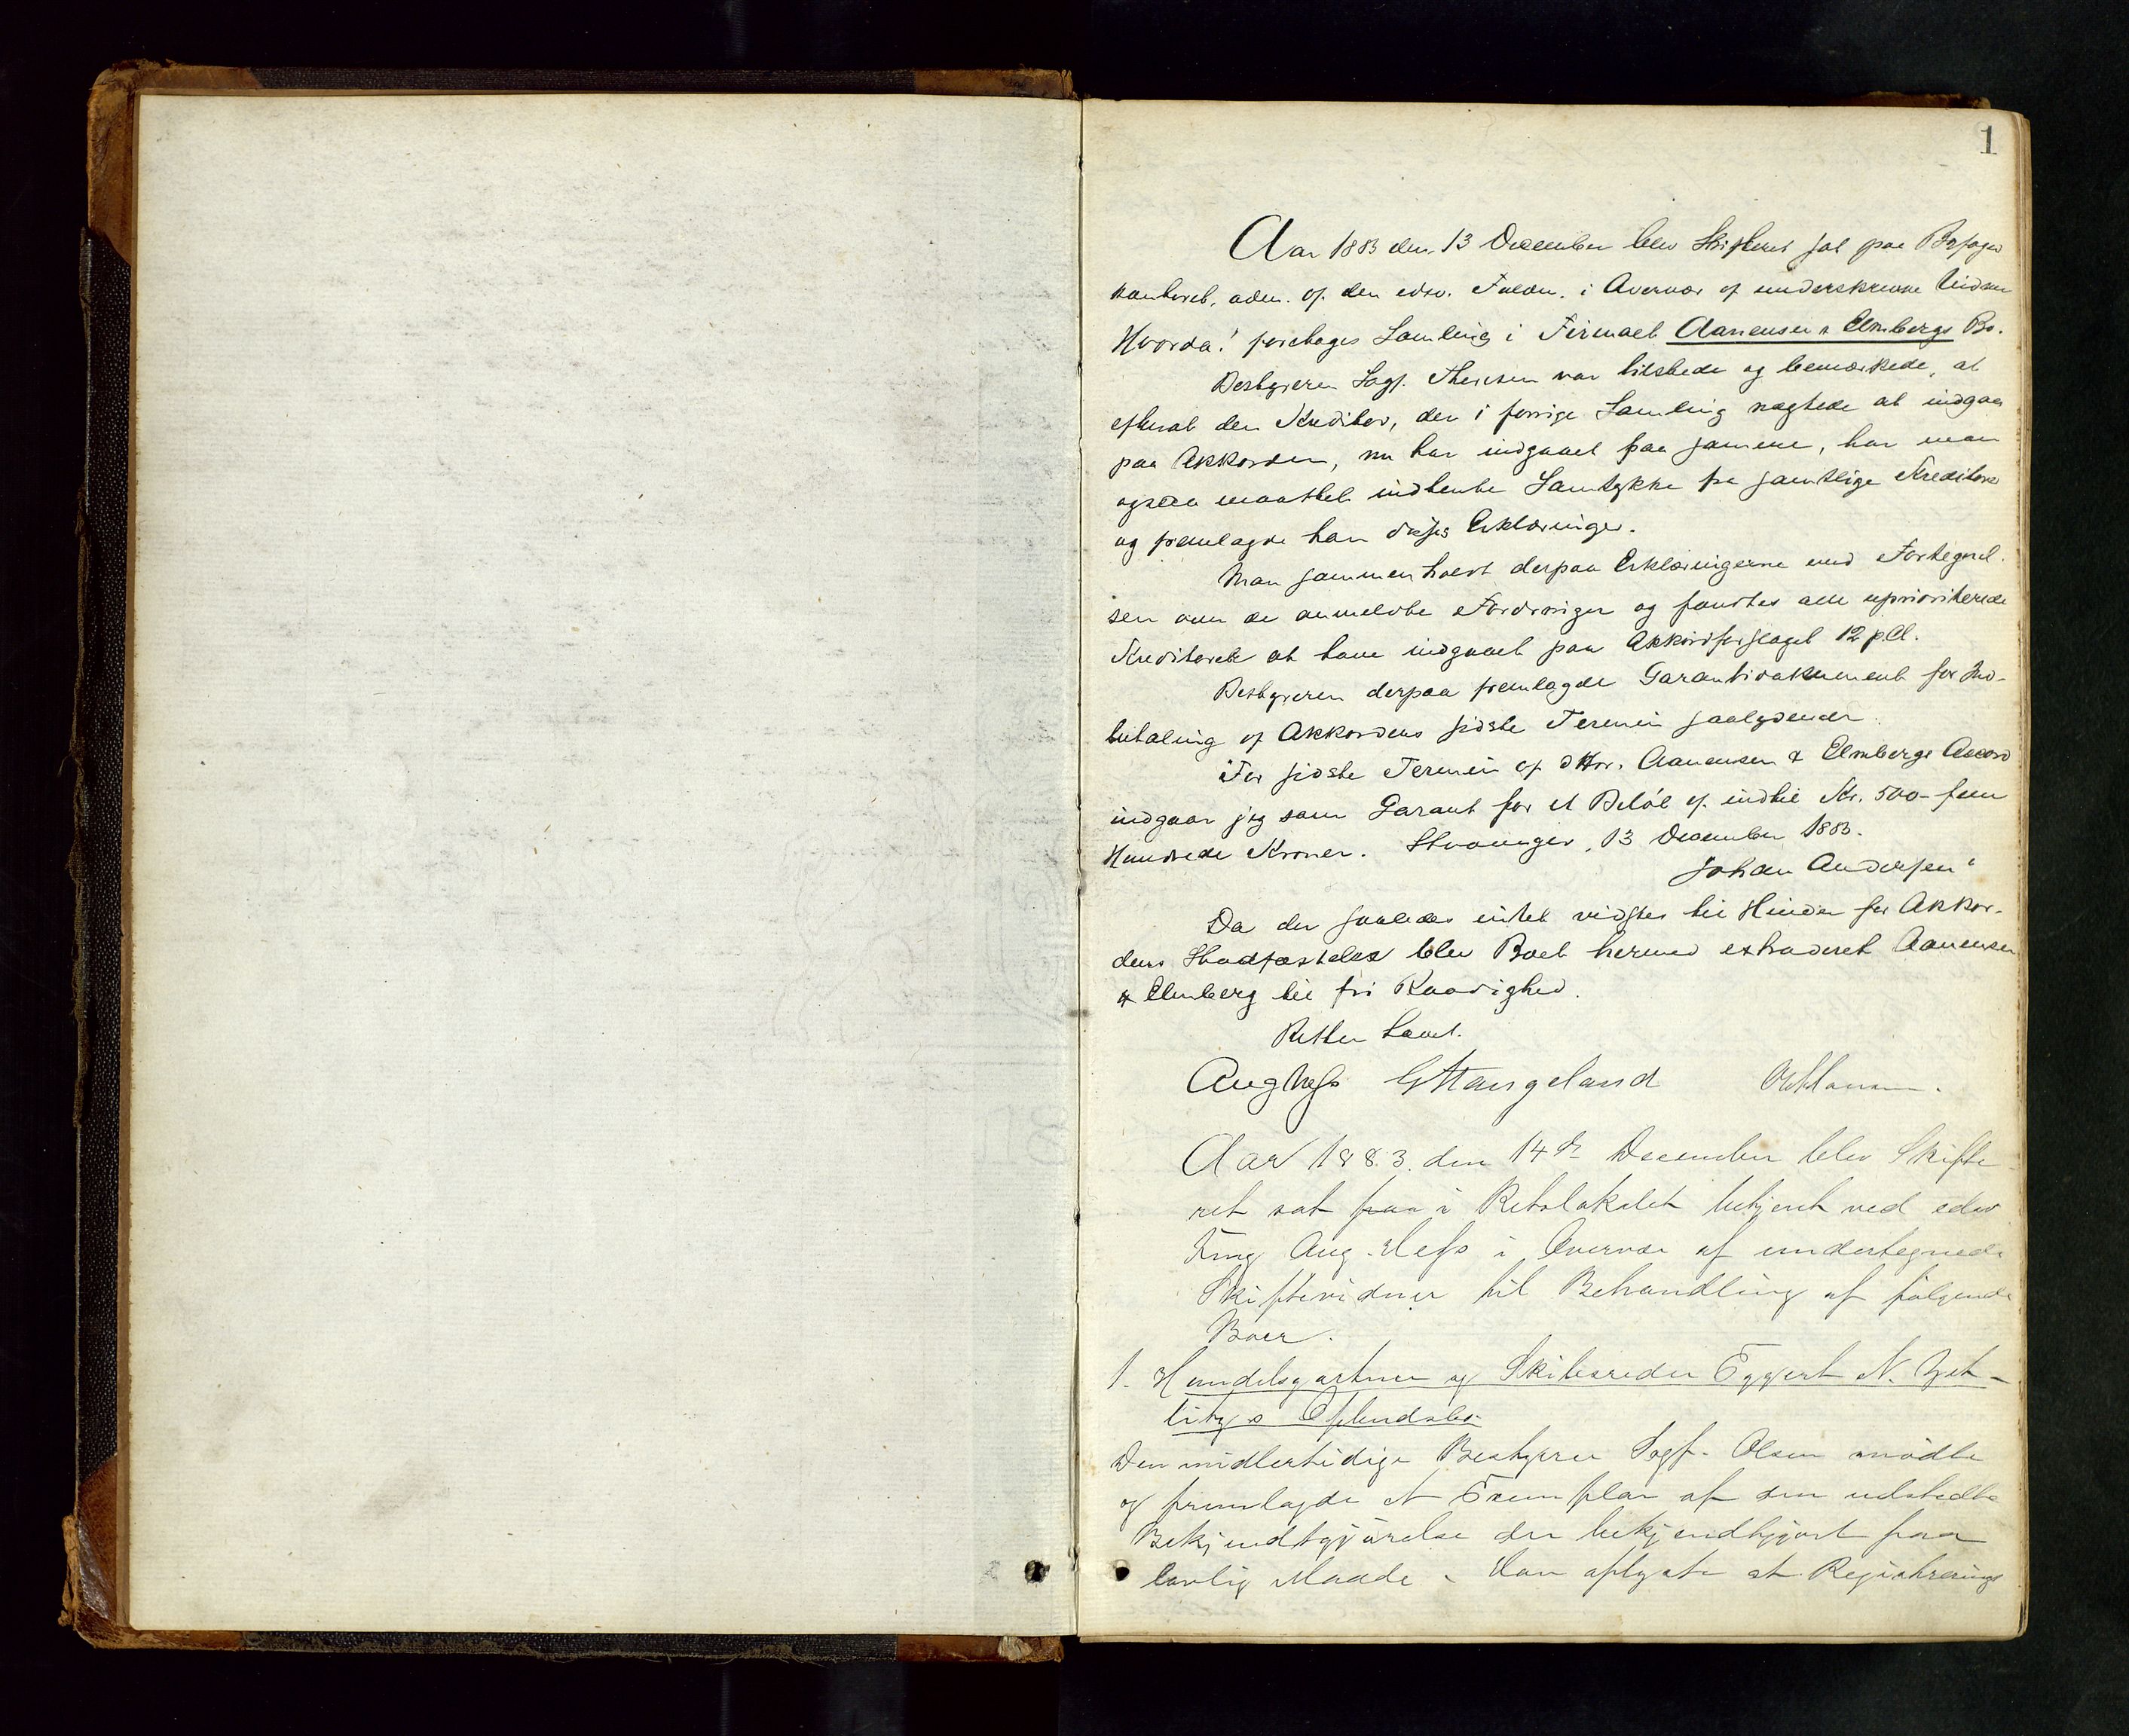 1
Aar 1883 den 13 December blev Skifteret sat paa Byfoged
kontoret, adm. af den edsv. Fuldm. i Overvær af underskrevne Vidner
Hvorda! foretoges Samling i Firmaet Aanensen & Elmbergs Bo.
Bestyreren Sagf. Thersen var tilstede og bemærkede, at
efterat den Kreditor, der i forrige Samling nægtede at indgaa
paa Akkorden, nu har indgaaet paa samme, har man
ogsaa maattet indhente Samtykke fra samtlige Kreditorer
og fremlagde han disses Erklæringer.
Man sammenholdt derpaa Erklæringerne med Fortegnel-
sen over de anmeldte Fordringer og fandtes alle uprioriterede
Kreditorer at have indgaaet paa Akkordforslaget 12 p.Ct.
Bestyreren derpaa fremlagde Garantidokument for Ind-
betaling af Akkordens sidste Termin saalydende
"For sidste Termin af DHrr. Aanensen & Elmbergs Accord
indgaar jeg som Garant for et Beløb af indtil Kr. 500 - fem
Hundrede Kroner. Stavanger, 13 December 1883.
Johan Andersen"
Da der saaledes intet vidstes til Hinder for Akkor-
dens Stadfæstelse blev Boet hermed extraderet Aanensen
& Elmberg til fri Raadighed.
Retten hævet.
Aug Hess G Stangeland
Aar 1883. den 14de December blev Skifte
ret sat paa i Retslokalet betjent ved edsv
Fmg Aug. Hess i Overvær af undertegnede
Skiftevidner til Behandling af følgende
Boer.
1. Handelsgartner og Skibsreder Eggert N. Zet-
litz's Opbudsbo
Den midlertidige Bestyrer Sagf. Olsen mødte
og fremlagde et Exemplar af den udstedte
Bekjendtgjørelse der bekjendtgjort paa
lovlig Maade. Han oplyste at Registrerings